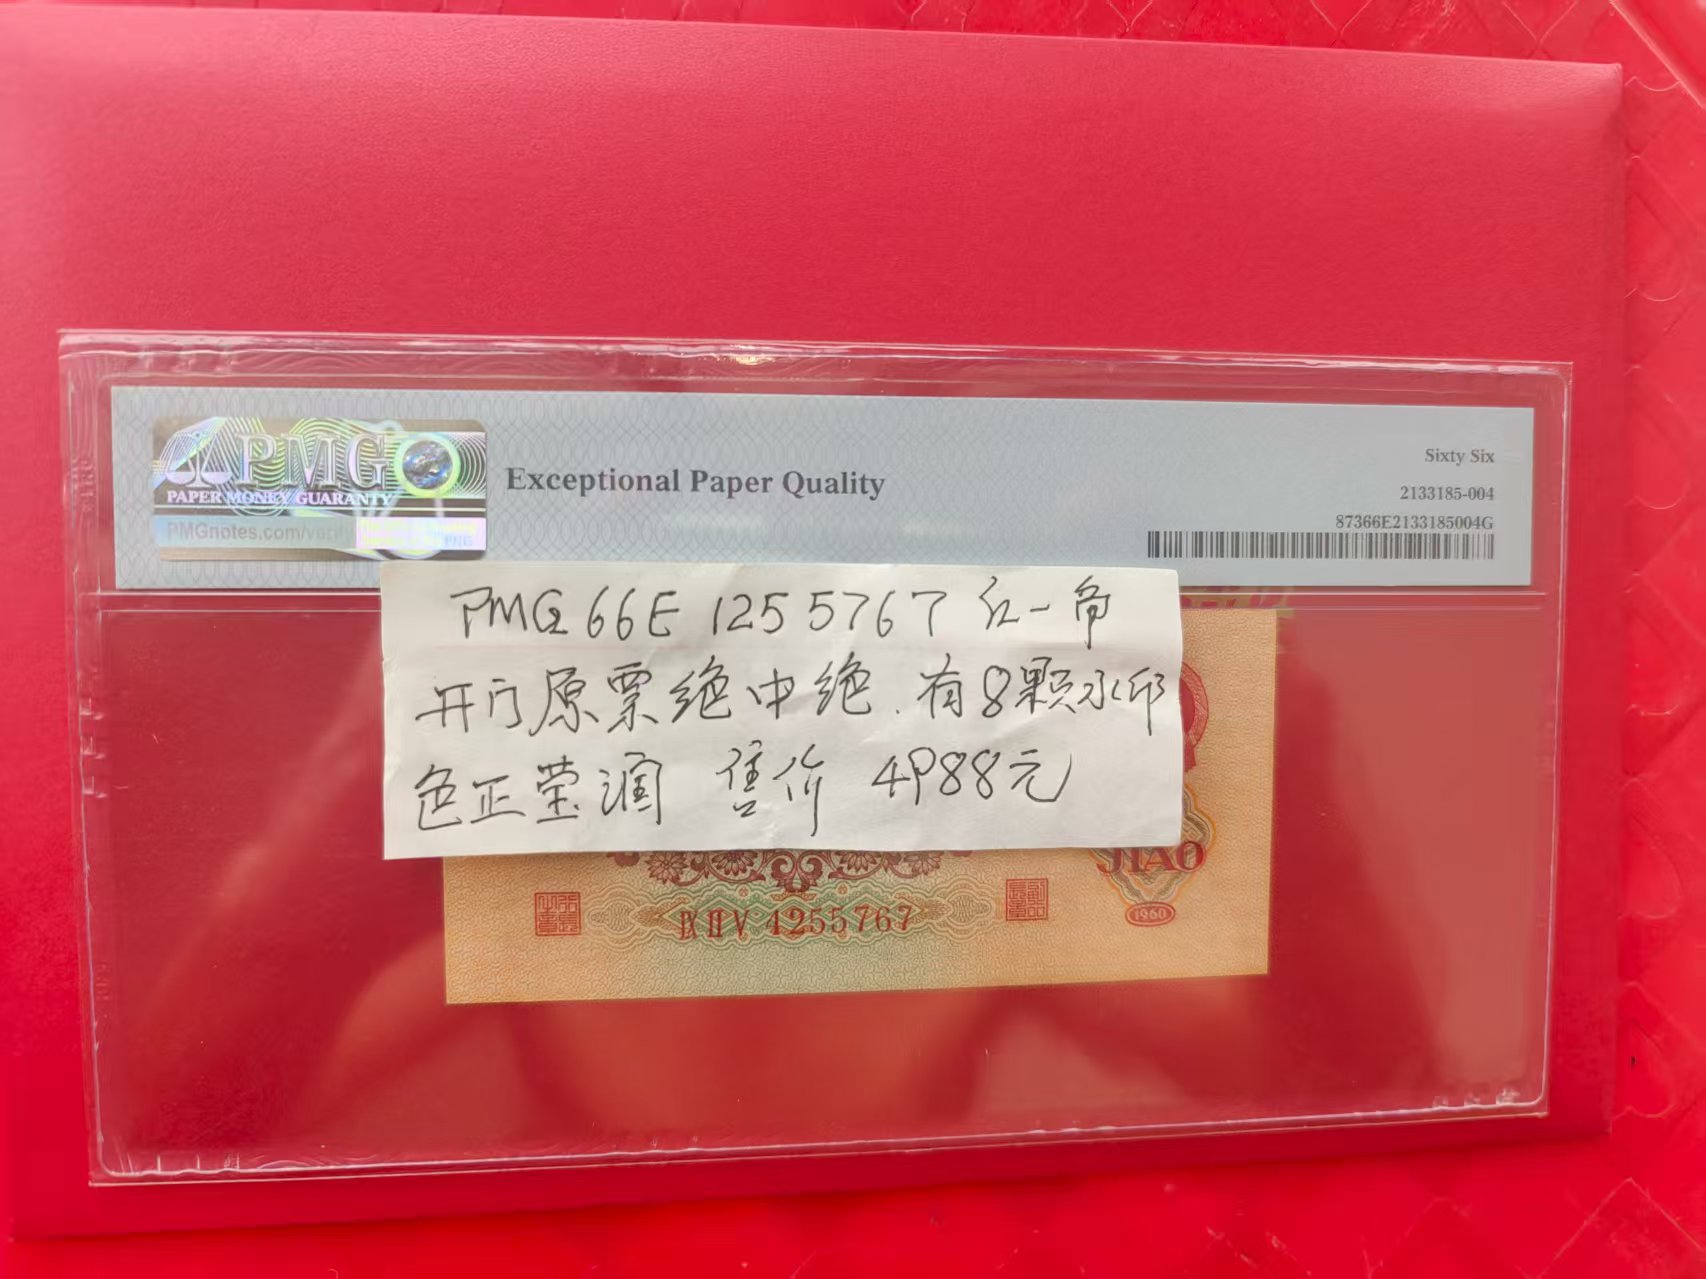 PMG
PAPER MONEY GUARANTY
PMGnotes.com/verify
Exceptional Paper Quality
Sixty Six
2133185-004
87366E2133185004G
PMG 66E 1255767 红一角
开门原票绝中绝.有8颗水印
色正莹润 售价 4988元
JIAO
ⅨⅡⅤ 4255767
1960